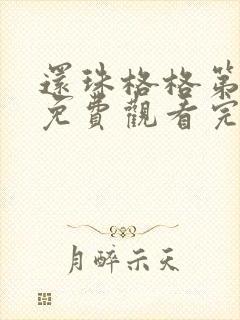 還珠格格第
免費觀看完
月醉示天